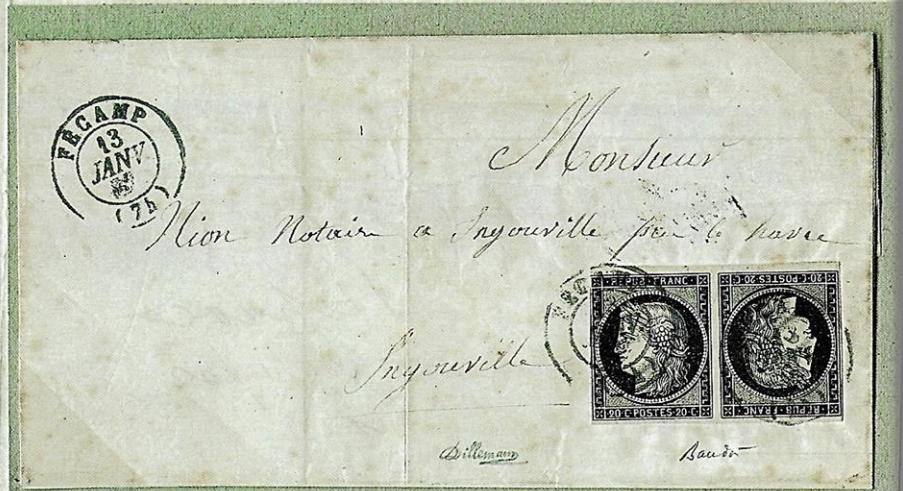 FÉCAMP
13
JANV.
(74)
Monsieur
Nion Notaire a Ingouville par le havre
Ingouville
REPUB FRANC
20 C POSTES 20 C
20 C POSTES 20 C
REPUB FRANC
Dillemann
Baudot